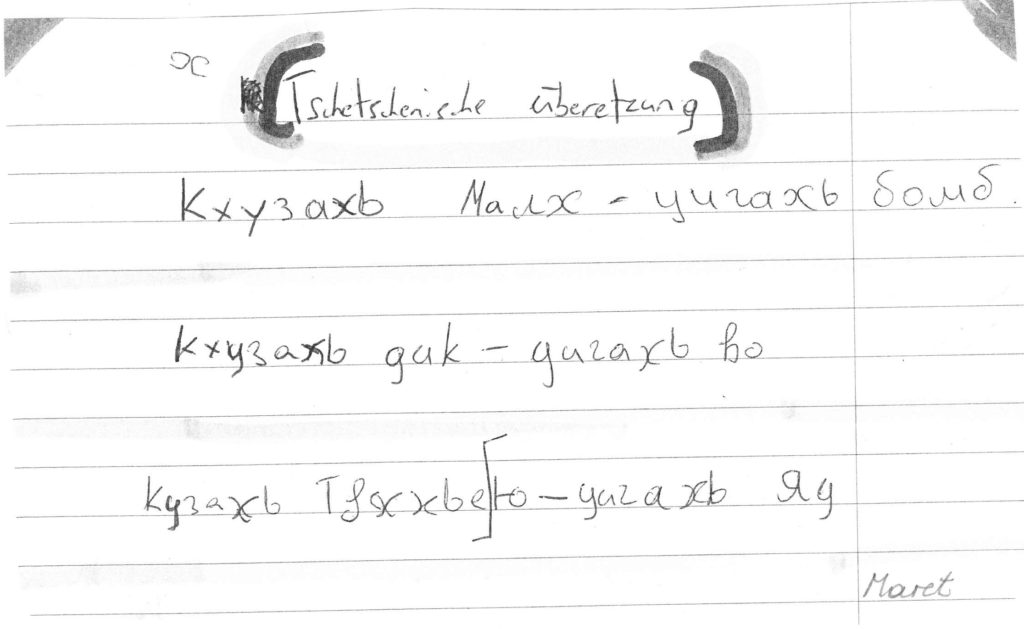 Tschetschenische überetzung
Кхузахь Малх - цигахь бомб.
Кхузахь дик - цигахь во
Кузахь
- цигахь Яц
Maret